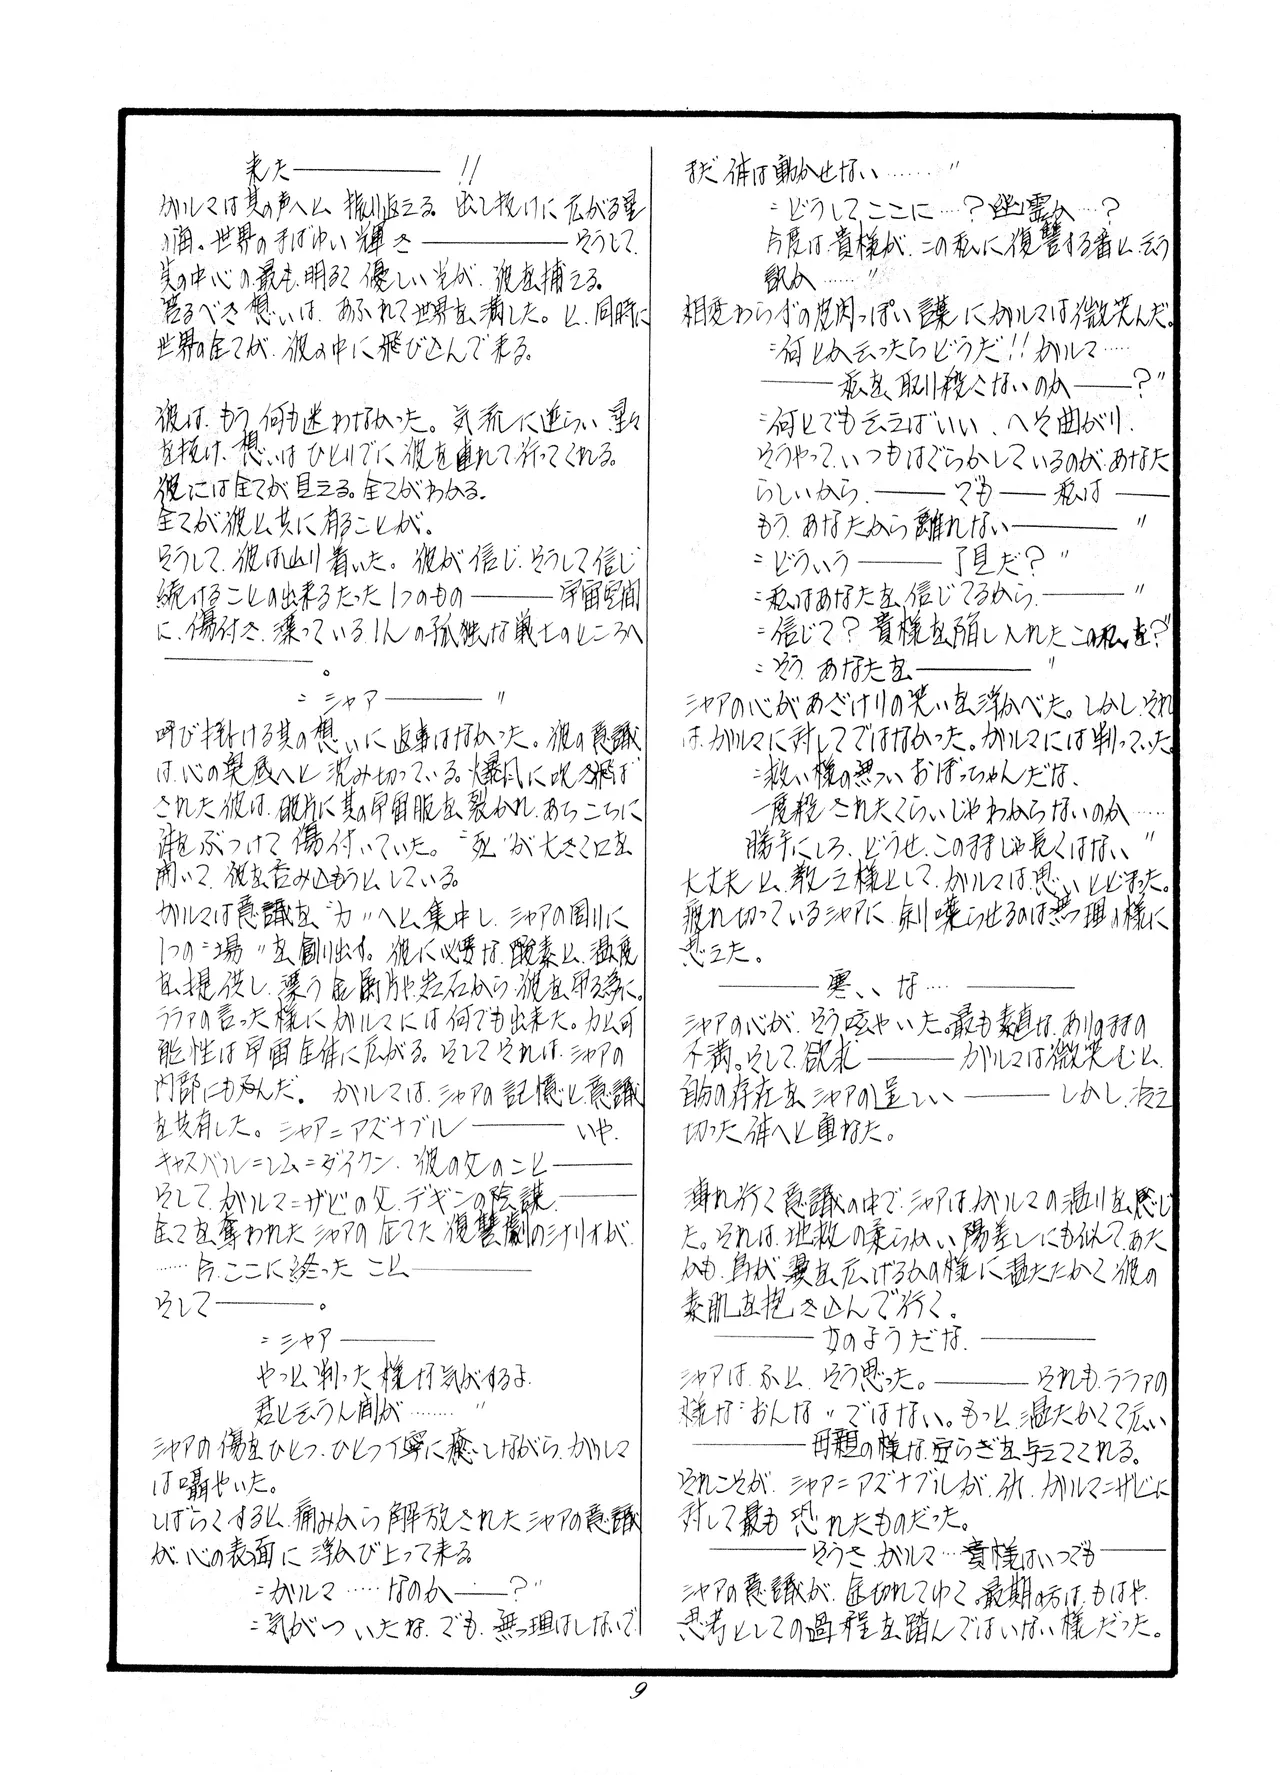 来た――――――!!
ガルマは其の声へと、振り返える。出し抜けに広がる星
の海。世界のまばゆい輝き――――――そうして、
其の中心の、最も、明るく優しい光が、彼を、捕える。
想いは、あふれて世界を、満した。と、同時に
世界の全てが、彼の中に飛び込んで来る。
彼は、もう、何も迷わなかった。気流に逆らい、星々
を抜け、想いはひとりでに彼を連れて行ってくれる。
彼には全てが見える。全てがわかる。
全てが彼と、共に有ることが。
そうして、彼は辿り着いた。彼が信じ、そうして信じ
続けることの出来るたった1つのもの――――宇宙空間
に、傷付き、漂っている、1人の孤独な戦士のところへ
――――――。
〝シャア――――〞
呼び掛ける其の想いに返事はなかった。彼の意識
は、心の奥底へと沈み切っている。爆風に吹き飛ば
された彼は、破片に其の宇宙服を、裂かれ、あちこちに
体をぶつけて傷付いていた。〝死〞が大きく口を
開いて、彼を、呑み込もうと、している。
ガルマは意識を〝力〞へと、集中し、シャアの周りに
1つの〝場〞を、創り出す。彼に必要な、酸素と、温度
を、提供し、漂う金属片や、岩石から、彼を、守る為に。
ララァの言った様にガルマには何でも出来た。力と可
能性は宇宙全体に広がる。そしてそれは、シャアの
内部にも及んだ。ガルマは、シャアの記憶と、意識
を共有した。シャア=アズナブル――――いや、
キャスバル=レム=ダイクン、彼の父のこと――――
そして、ガルマ=ザビの父、デギンの陰謀、――――
全てを、奪われたシャアの企てた復讐劇のシナリオが、
……今、ここに終ったこと――――――
そして――――――。
〝シャア――――――
やっと、判った様な気がするよ、
君と云う人間が………〞
シャアの傷をひとつ、ひとつ丁寧に癒しながら、ガルマ
は囁やいた。
しばらくすると、痛みから解放されたシャアの意識
が、心の表面に浮かび上って来る。
〝ガルマ……なのか――――?〞
〝気がついたね、でも、無理はしないで、
まだ体は動かせない………〞
〝どうしてここに……?幽霊か……?
今度は、貴様が、この私に復讐する番と、云う
訳か……〞
相変わらずの皮肉っぽい言葉にガルマは微笑んだ。
〝何とか云ったらどうだ!!ガルマ……
――――私を、取り殺さないのか――――?〞
〝何とでも云えばいい、へそ曲がり、
そうやって、いつもはぐらかしているのが、あなた
らしいから、――――でも――――私は――――
もう、あなたから離れない――――――〞
〝どういう――――了見だ?〞
〝私はあなたを、信じてるから、――――〞
〝信じて?貴様を陥し入れたこの私を?〞
〝そう、あなたを――――――〞
シャアの心があざけりの笑いを浮かべた。しかし、それ
は、ガルマに対してではなかった。ガルマには判っていた。
〝救い様の無いおぼっちゃんだな、
一度殺されたくらいじゃわからないのか……
勝手にしろ、どうせ、このままじゃ長くはない〞
大丈夫と、教え様として、ガルマは、思いとどまった。
疲れ切っているシャアに、余り喋らせるのは無理の様に
思えた。
――――――寒いな……――――――
シャアの心が、そう呟やいた。最も素直な、ありのままの
不満。そして、欲求――――ガルマは微笑むと、
自分の存在を、シャアの逞しい――――しかし、冷え
切った体へと重ねた。
薄れ行く意識の中で、シャアは、ガルマの温りを、感じ
た。それは、地球の柔らかい陽差しにも似て、あた
かも、鳥が翼を、広げるかの様に温たたかく彼の
素肌を抱き込んで行く。
――――――女のようだな、――――――
シャアは、ふと、そう思った。――――それも、ララァの
様な〝おんな〞ではない。もっと、温たかくて広い
――――――母親の様な、安らぎを、与えてくれる。
それこそが、シャア=アズナブルが、ガルマ=ザビに
対して最も恐れたものだった。
――――――そうさ、ガルマ……貴様はいつでも――――
シャアの意識が、途切れてゆく。最期の方は、もはや、
思考としての過程を、踏んではいない様だった。
9